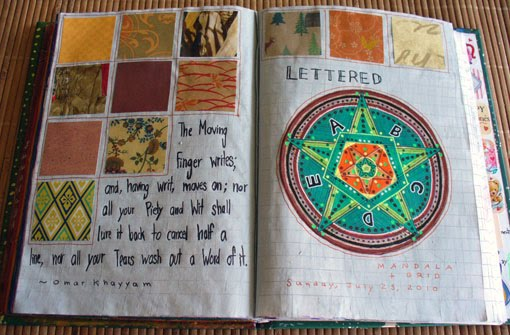 The Moving
Finger writes;
and, having writ, moves on; nor
all your Piety and Wit shall
lure it back to cancel half a
line, nor all your Tears wash out a Word of it.
~ Omar Khayyam
LETTERED
A
B
C
D
E
MANDALA
& GRID
Sunday, July 25, 2010